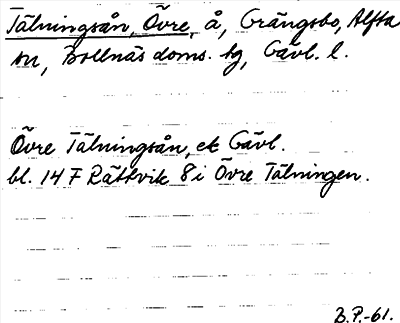 Tälningsån, Övre, å, Grängsbo, Alfta
sn, Bollnäs doms. tg, Gävl. l.
Övre Tälningsån, ek Gävl.
bl. 14 F Rättvik 8 i Övre Tälningen.
B.P.-61.